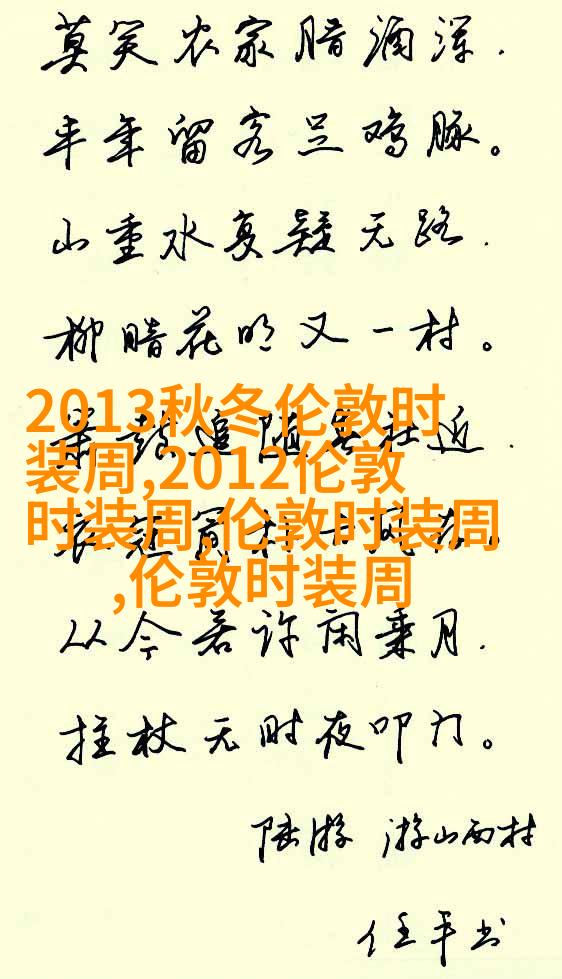 莫笑农家腊酒浑.
丰年留客足鸡豚。
山重水复疑无路.
柳暗花明又一村。
2013秋冬伦敦时
装周,2012伦敦
时装周,伦敦时装周
,伦敦时装周
追随 社近.
从今若许闲乘月.
拄杖无时夜叩门。
陆游 游山西村
任平书